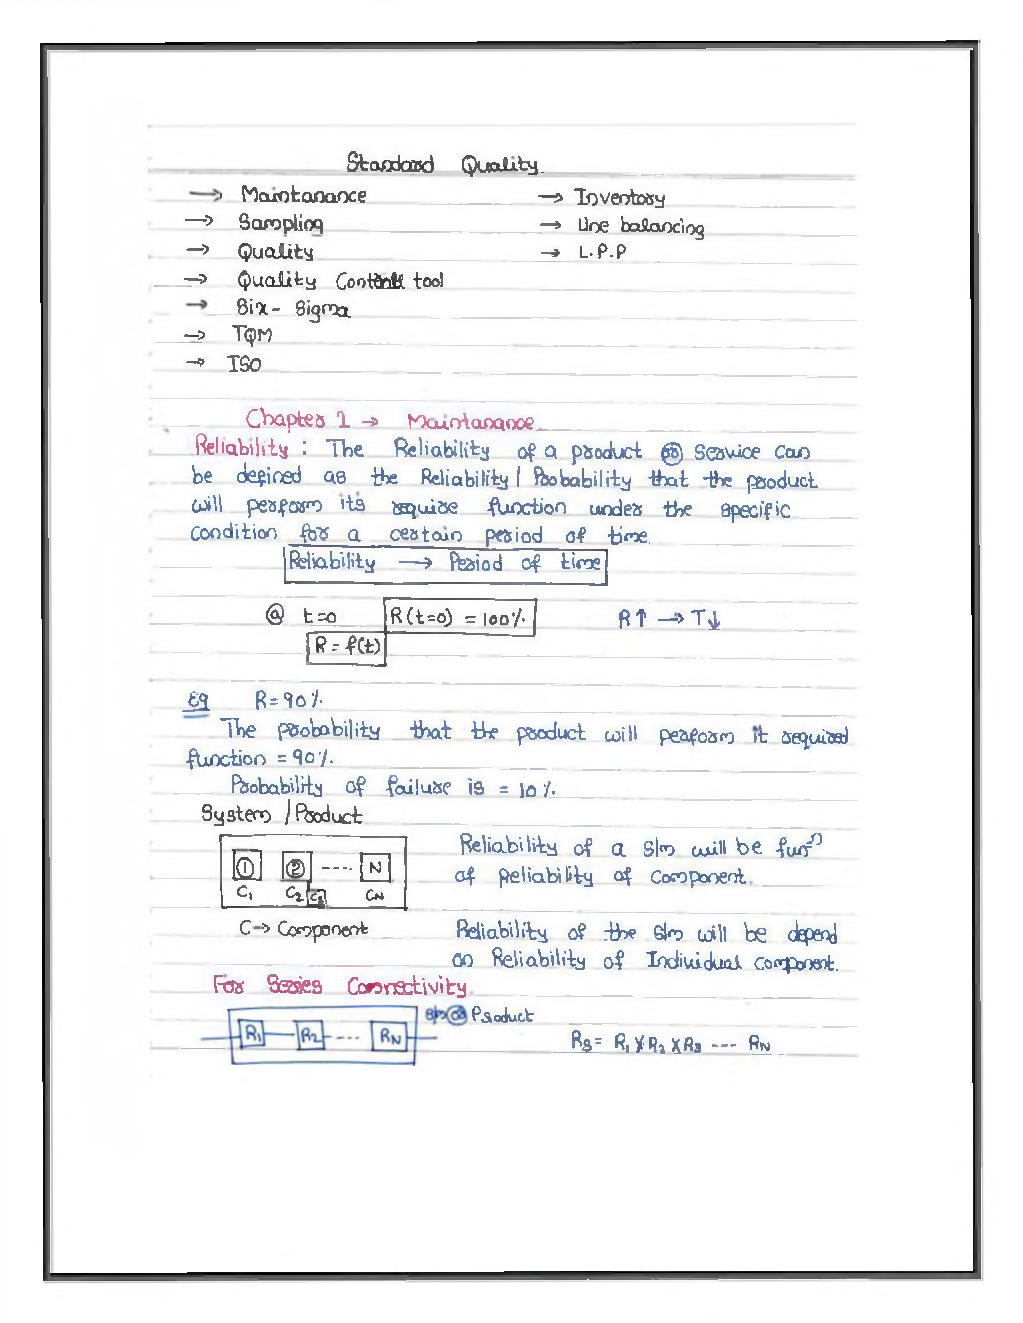 Standard Quality.
→ Maintanance → Inventory
→ Sampling → Line balancing
→ Quality → L.P.P
→ Quality tool
→ Six - Sigma
→ TQM
→ ISO
Chapter 1 → Maintanance.
Reliability : The Reliability of a product or Service can
be defined as the Reliability / Probability that the product
will perform its require function under the specific
condition for a certain period of time.
Reliability → Period of time
@ t=0 R(t=0) = 100% R↑ → T↓
R = f(t)
Eg R=90%.
The probability that the product will perform it required
function = 90%.
Probability of failure is = 10%.
System / Product
1 2 ---- N Reliability of a S/m will be funⁿ
C₁ C₂ C₃ CN of Reliability of Component.
C→ Component Reliability of the S/m will be depend
on Reliability of Individual Component.
For Series Connectivity
S/m or Product
R₁ R₂ ---- RN RS= R₁ X R₂ X R₃ --- RN